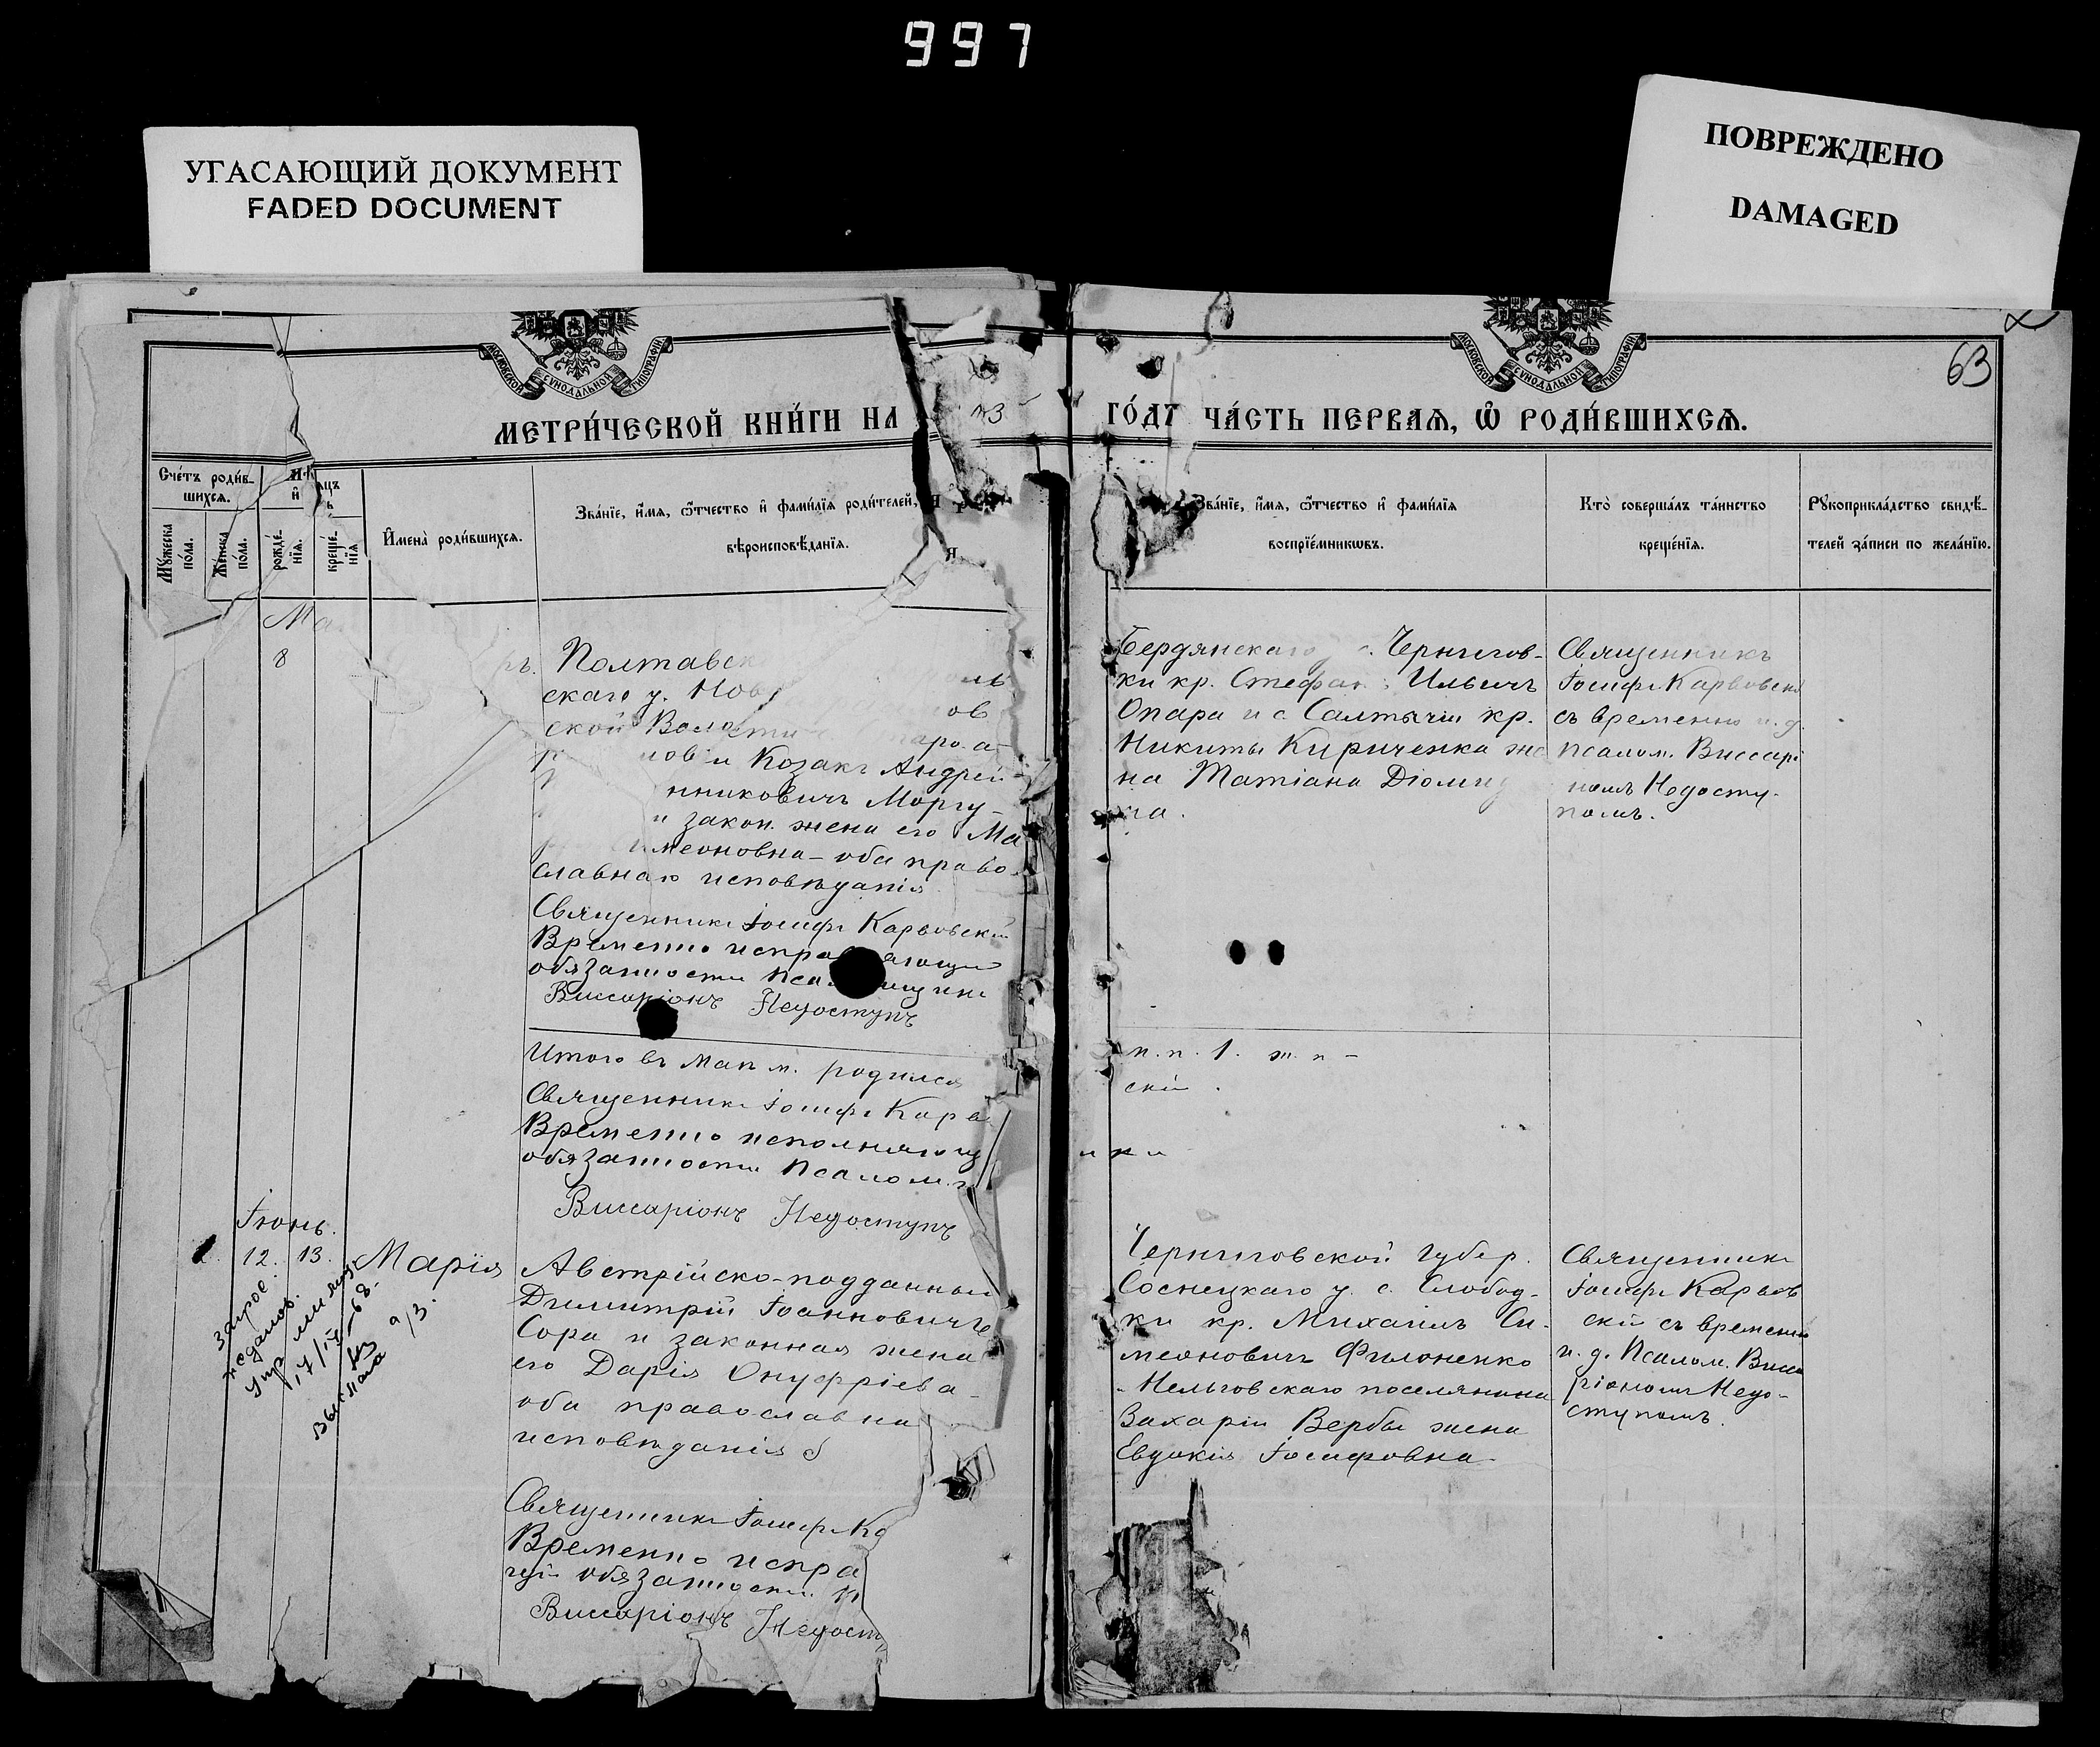 997
УГАСАЮЩИЙ ДОКУМЕНТ
FADED DOCUMENT
ПОВРЕЖДЕНО
DAMAGED
МОСКОВСКОЙ СѴНОДАЛЬНОЙ ТИПОГРАФІИ
МОСКОВСКОЙ СѴНОДАЛЬНОЙ ТИПОГРАФІИ
63
МЕТРИ́ЧЕСКОЙ КНИ́ГИ НА
ГО́ДЪ ЧА́СТЬ ПЕРВАЯ, Ѡ҆ РОДИ́ВШИХСЯ.
Сче́тъ роди́в-
шихся.
Мꙋжеска по́ла.
Же́нска по́ла.
рожде́-
нїя.
креще́-
нїя
И҆мена̀ роди́вшихся.
Зва́нїе, и҆́мя, ѻ҆́тчество и҆ фами́лїя роди́телей,
вѣроисповѣ́данїя.
Зва́нїе, и҆́мя, ѻ҆́тчество и҆ фами́лїя
воспрїе́мникѡвъ.
Кто̀ соверша́лъ та́инство
креще́нїя.
Рꙋкоприкла́дство свидѣ́-
телей за́писи по жела́нїю.
Ма
8
ръ.
Полтавск
скаго у. Нов
ской Волости
нов и Козакъ Андрей
нниковичъ Моргу-
и закон. жена его Ма
меоновна – оба право
славнаго исповѣданія
Священникъ Іосифъ Карвовскій
Временно испра ающій
обязанности Пса мщика
Виссаріонъ Недоступъ
Бердянскаго с. Чернигов-
ки кр. Стефанъ Ильичъ
Опара и с. Салтычіи кр.
Никиты Кириченка же
на Татіана Діомид
на.
Священникъ
Іосифъ Карвовскі
съ временно и. д.
псалом. Виссарі
ономъ Недосту-
помъ.
Итого въ Маѣ м. родился
м. п. 1. ж. п –
Священникъ Іосифъ Карв
скій.
Временно исполняющ
обязанности Псалом
ики
Виссаріонъ Недоступъ
Іюнь.
12. 13.
Марія
запрос.
17/IV–68.
Австрійско-подданный
Димитрій Іоанновичъ
Сора и законная жена
его Дарія Онуфріева –
оба православна
исповѣданія
Священникъ Іосифъ Ка
Временно испра
щій обязанности П
Виссаріонъ Недост
Черниговской губер.
Сосницкаго у. с. Слобод-
ки кр. Михаилъ Си-
меоновичъ Филоненко
Нельговскаго поселянина
Захарія Вербы жена
Евдокія Іосифовна
Священникъ
Іосифъ Карвов
скій съ временно
и. д. Псалом. Висса
ріономъ Недо-
ступомъ.